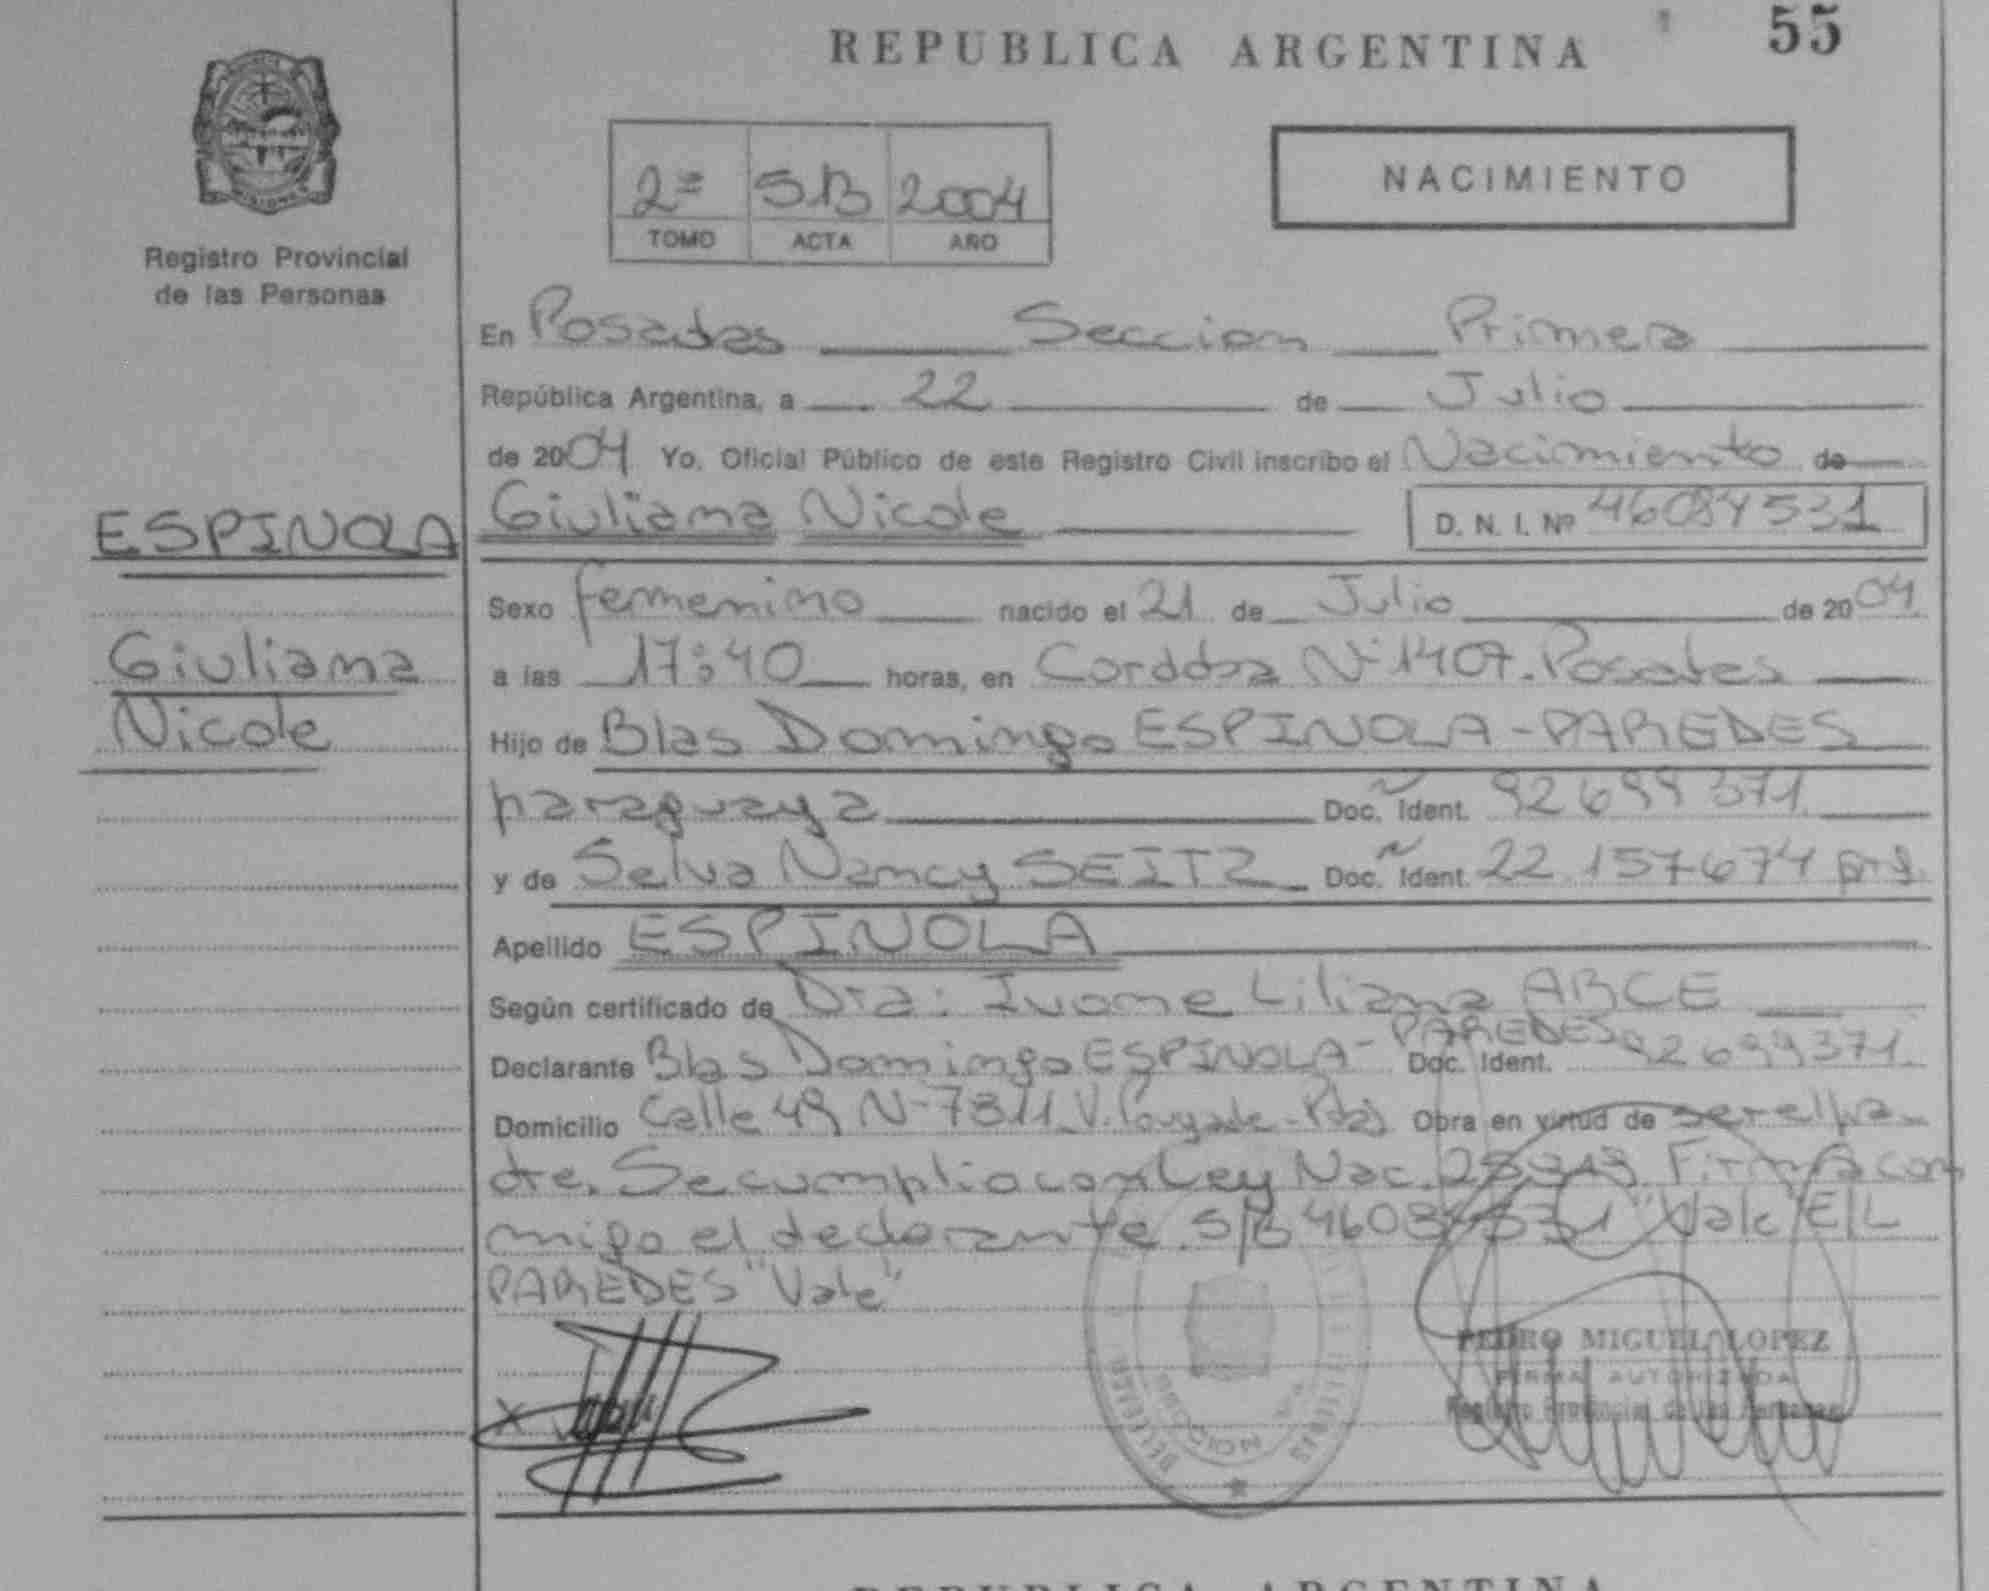 REPUBLICA ARGENTINA
55
Registro Provincial
de las Personas
2º 513 2004
TOMO ACTA AÑO
NACIMIENTO
En Posadas Seccion Primera
República Argentina, a 22 de Julio
de 2004 Yo, Oficial Público de este Registro Civil inscribo el Nacimiento de
ESPINOLA
Giuliana Nicole
D. N. I. Nº 46084531
Sexo femenino nacido el 21 de Julio de 2004
Giuliana
Nicole
a las 17:40 horas, en Cordoba Nº 1407. Posadas
Hijo de Blas Domingo ESPINOLA - PAREDES
paraguaya Doc. Ident. 92699371
y de Selva Nancy SEITZ Doc. Ident. 22.157674 arg.
Apellido ESPINOLA
Según certificado de Dra: Ivone Liliana ARCE
Declarante Blas Domingo ESPINOLA - PAREDES Doc. Ident. 92699371
Domicilio Calle 49 N-7311 V. Obra en virtud de ser el pa
dre. Se cumplio con Ley Nac. Firma con
migo el declarante. S/B 46084531 "Vale" E/L
PAREDES "Vale"
X
PEDRO MIGUEL LOPEZ
FIRMA AUTORIZADA
Registro Provincial de las Personas
REPUBLICA ARGENTINA